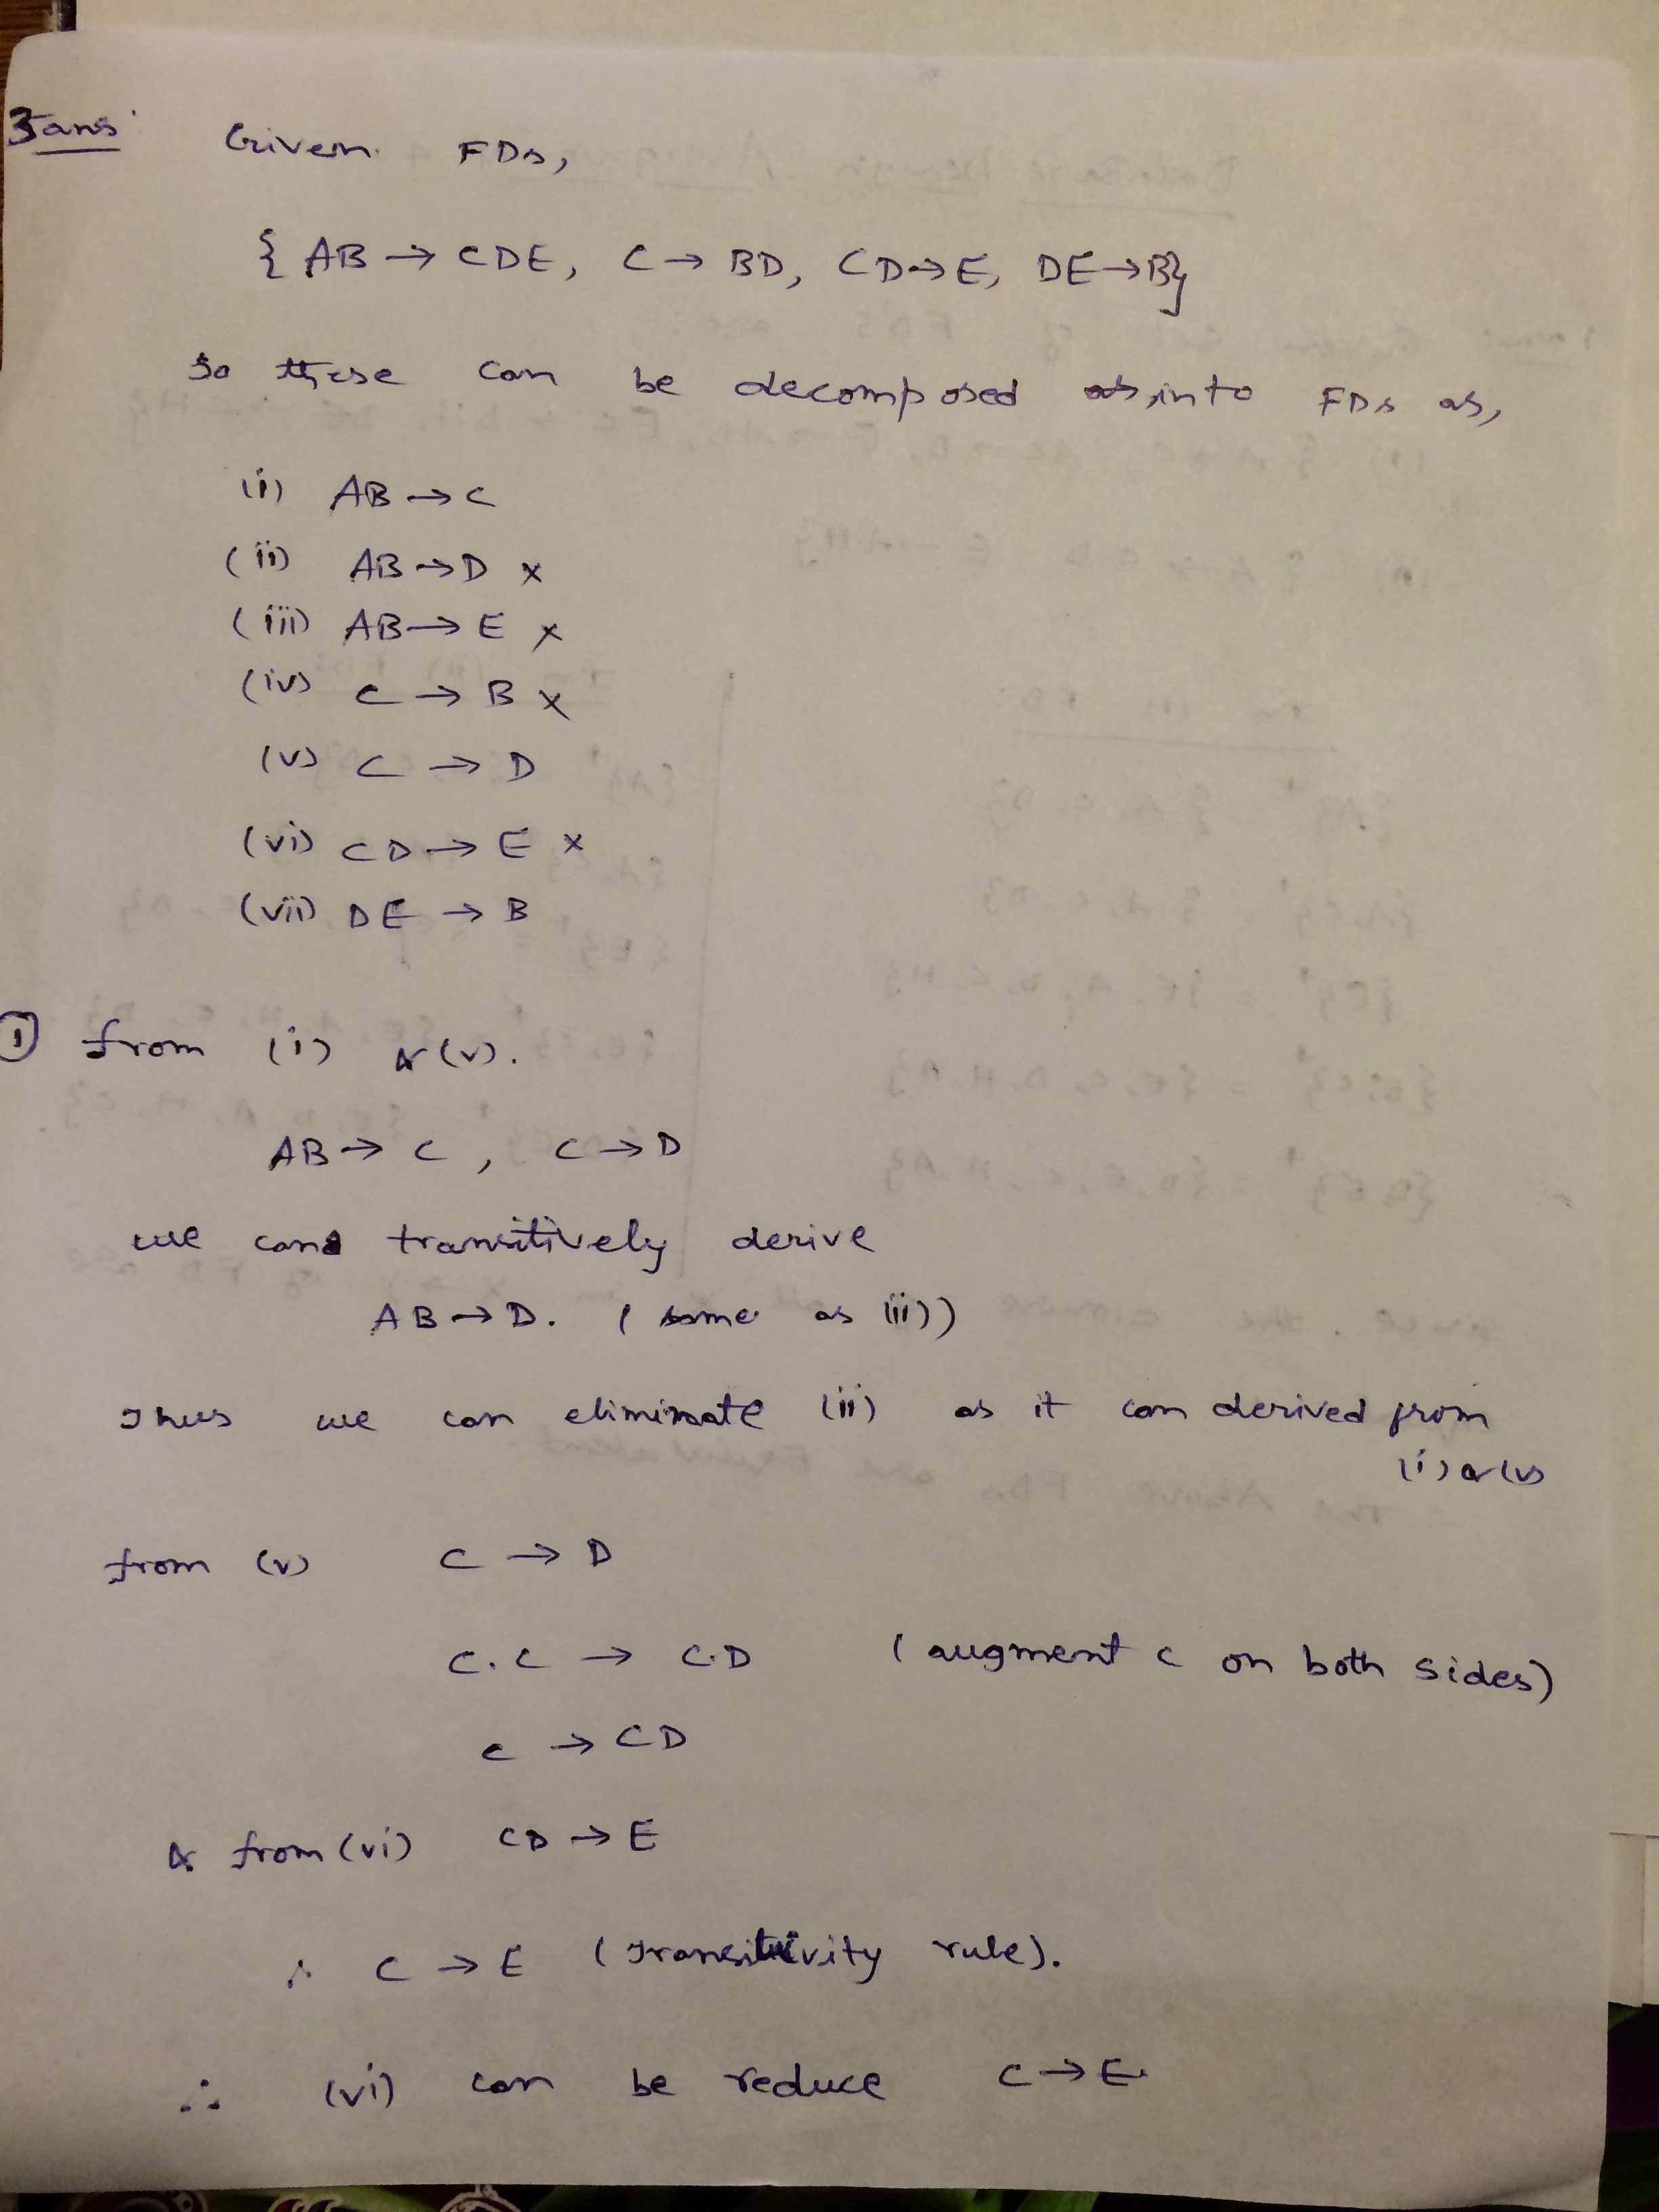 3 ans
Given FDs,
{ AB → CDE, C → BD, CD → E, DE → B}
So these can be decomposed into FDs as,
(i) AB → C
(ii) AB → D x
(iii) AB → E x
(iv) C → B x
(v) C → D
(vi) CD → E x
(vii) DE → B
① from (i) & (v).
AB → C , C → D
we can transitively derive
AB → D. (same as (ii))
Thus we can eliminate (ii) as it can derived from
(i) & (v)
from (v) C → D
C.C → C.D (augment C on both sides)
C → CD
& from (vi) CD → E
∴ C → E (Transitivity rule).
∴ (vi) can be reduce C → E.